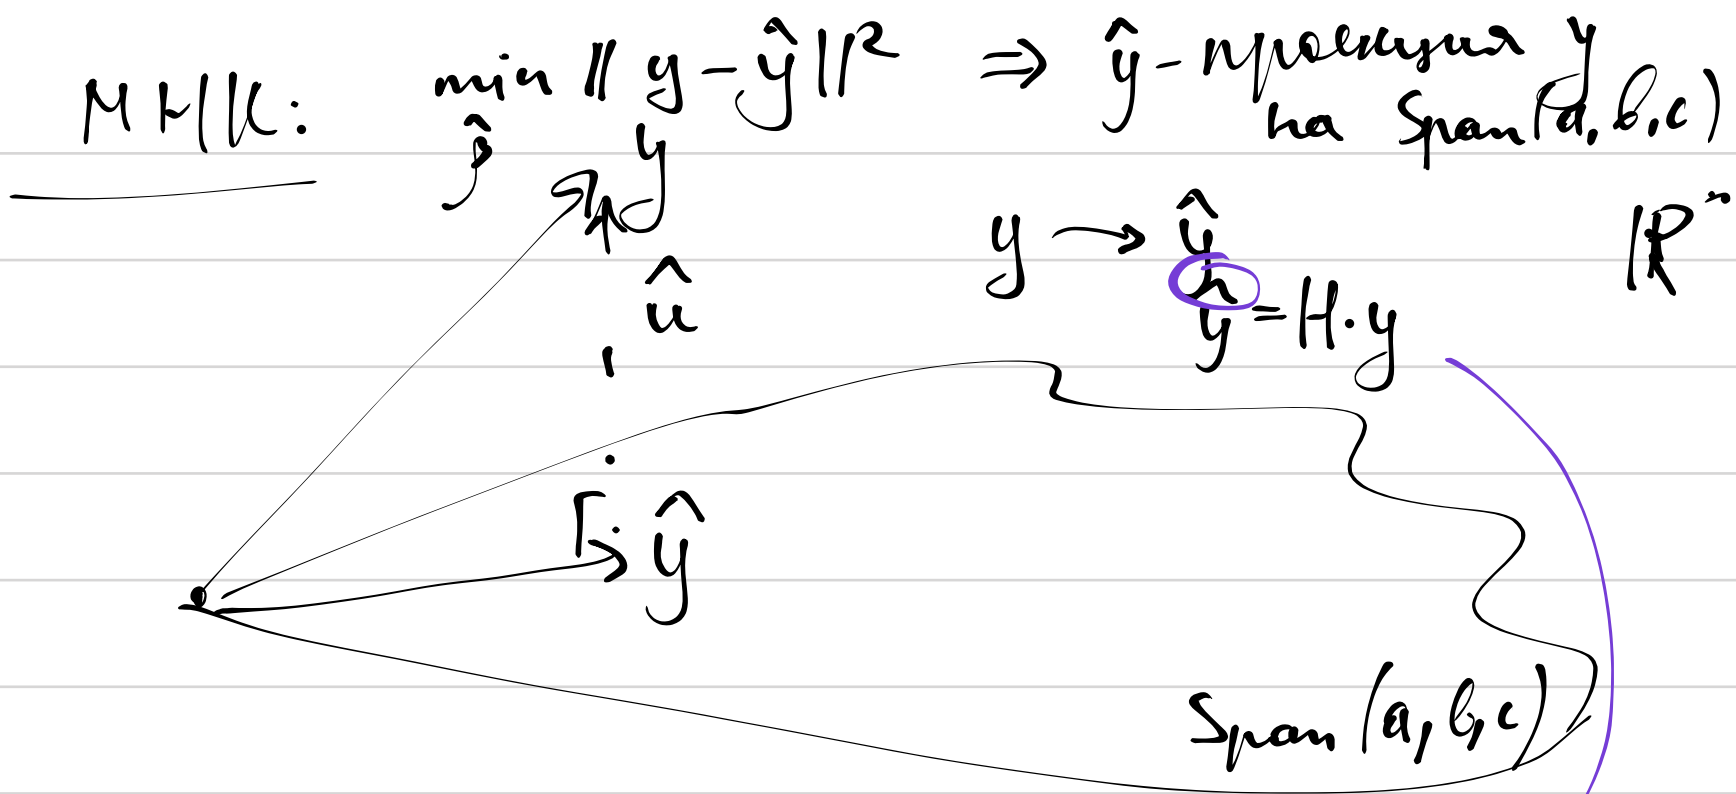 МНК: min ‖y - ŷ‖² ⇒ ŷ - проекция y
β̂
на Span(a, b, c)
y
y → ŷ
ℝⁿ
û
ŷ = H·y
ŷ
Span(a, b, c)